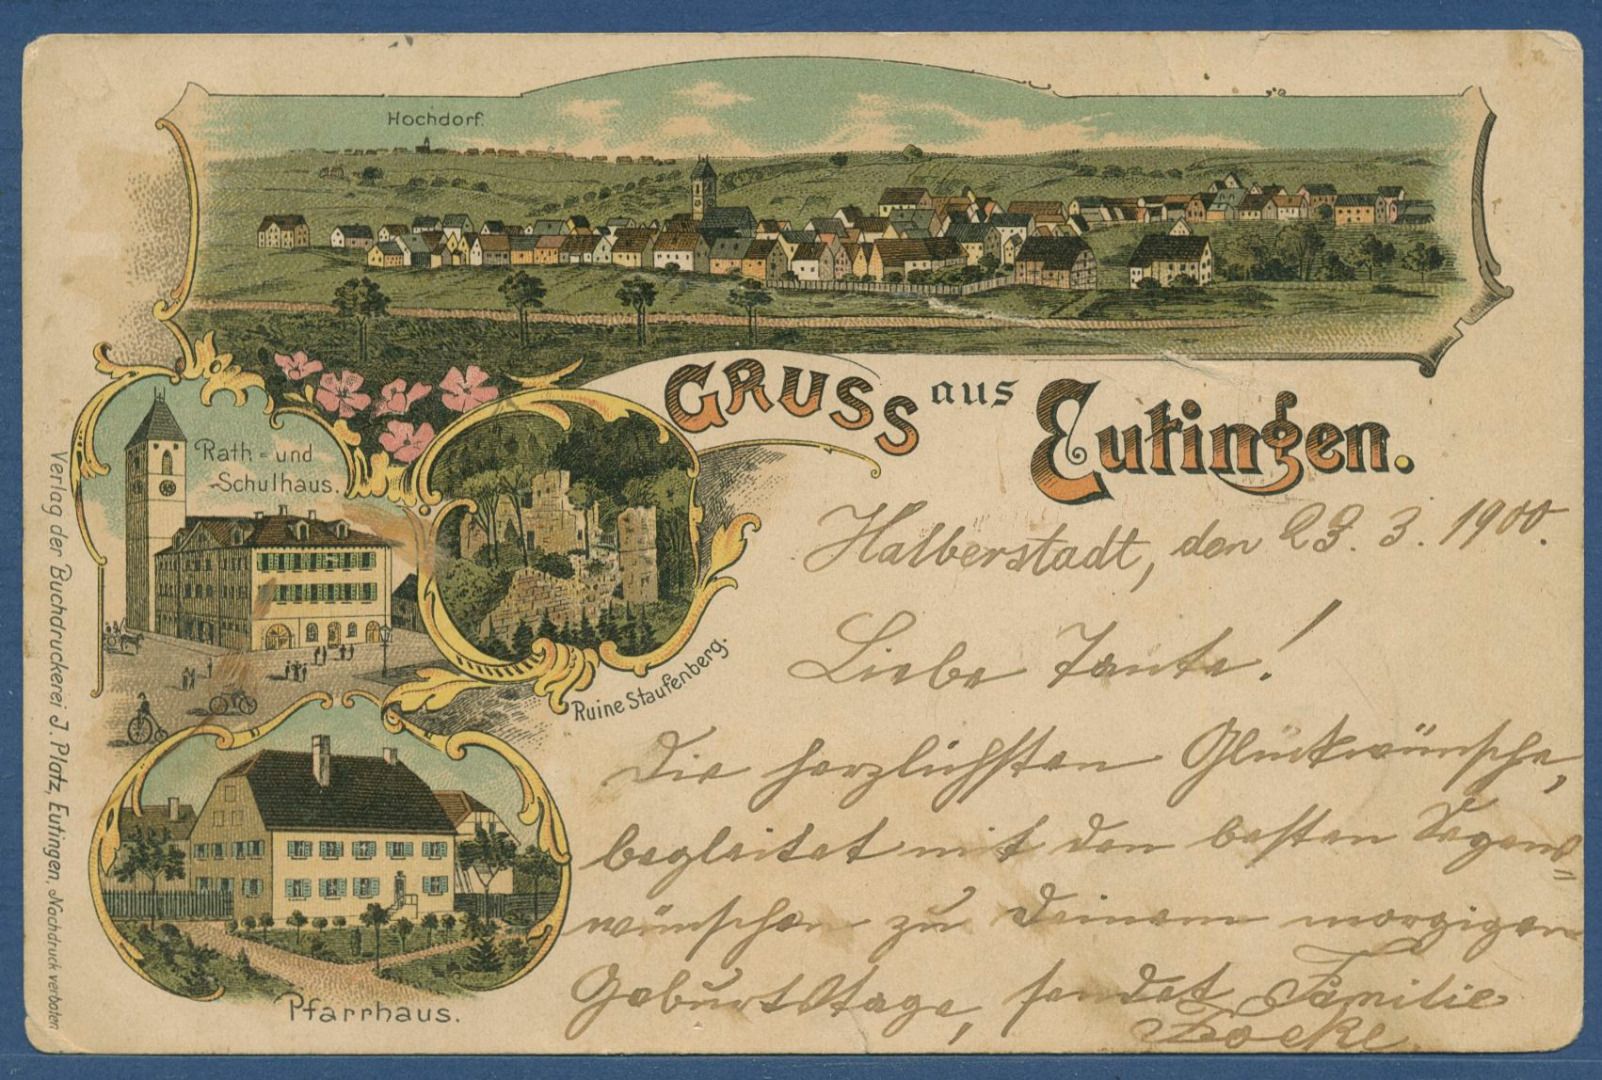 Hochdorf.
GRUSS aus Eutingen.
Rath- und
Schulhaus.
Ruine Staufenberg.
Pfarrhaus.
Verlag der Buchdruckerei J. Platz, Eutingen, Nachdruck verboten
Halberstadt, den 23. 3. 1900.
Liebe Tante!
Die herzlichsten Glückwünsche,
begleitet mit den besten Segens-
wünschen zu Deinem morgigen
Geburtstage, sendet Familie